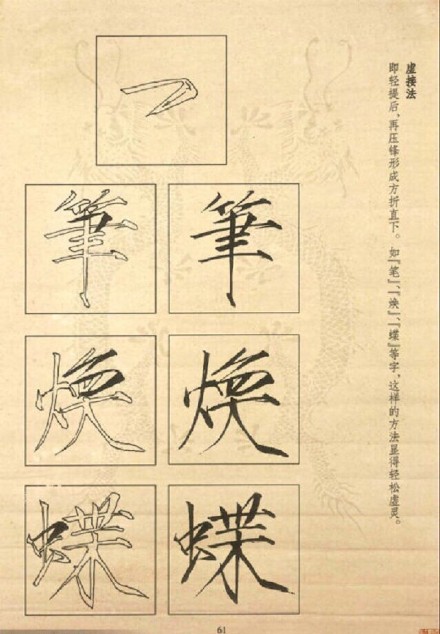 虚接法
即轻提后，再压锋形成方折直下。如『笔』、『焕』、『蝶』等字，这样的方法显得轻松虚灵。
筆 筆
焕 焕
蝶 蝶
61